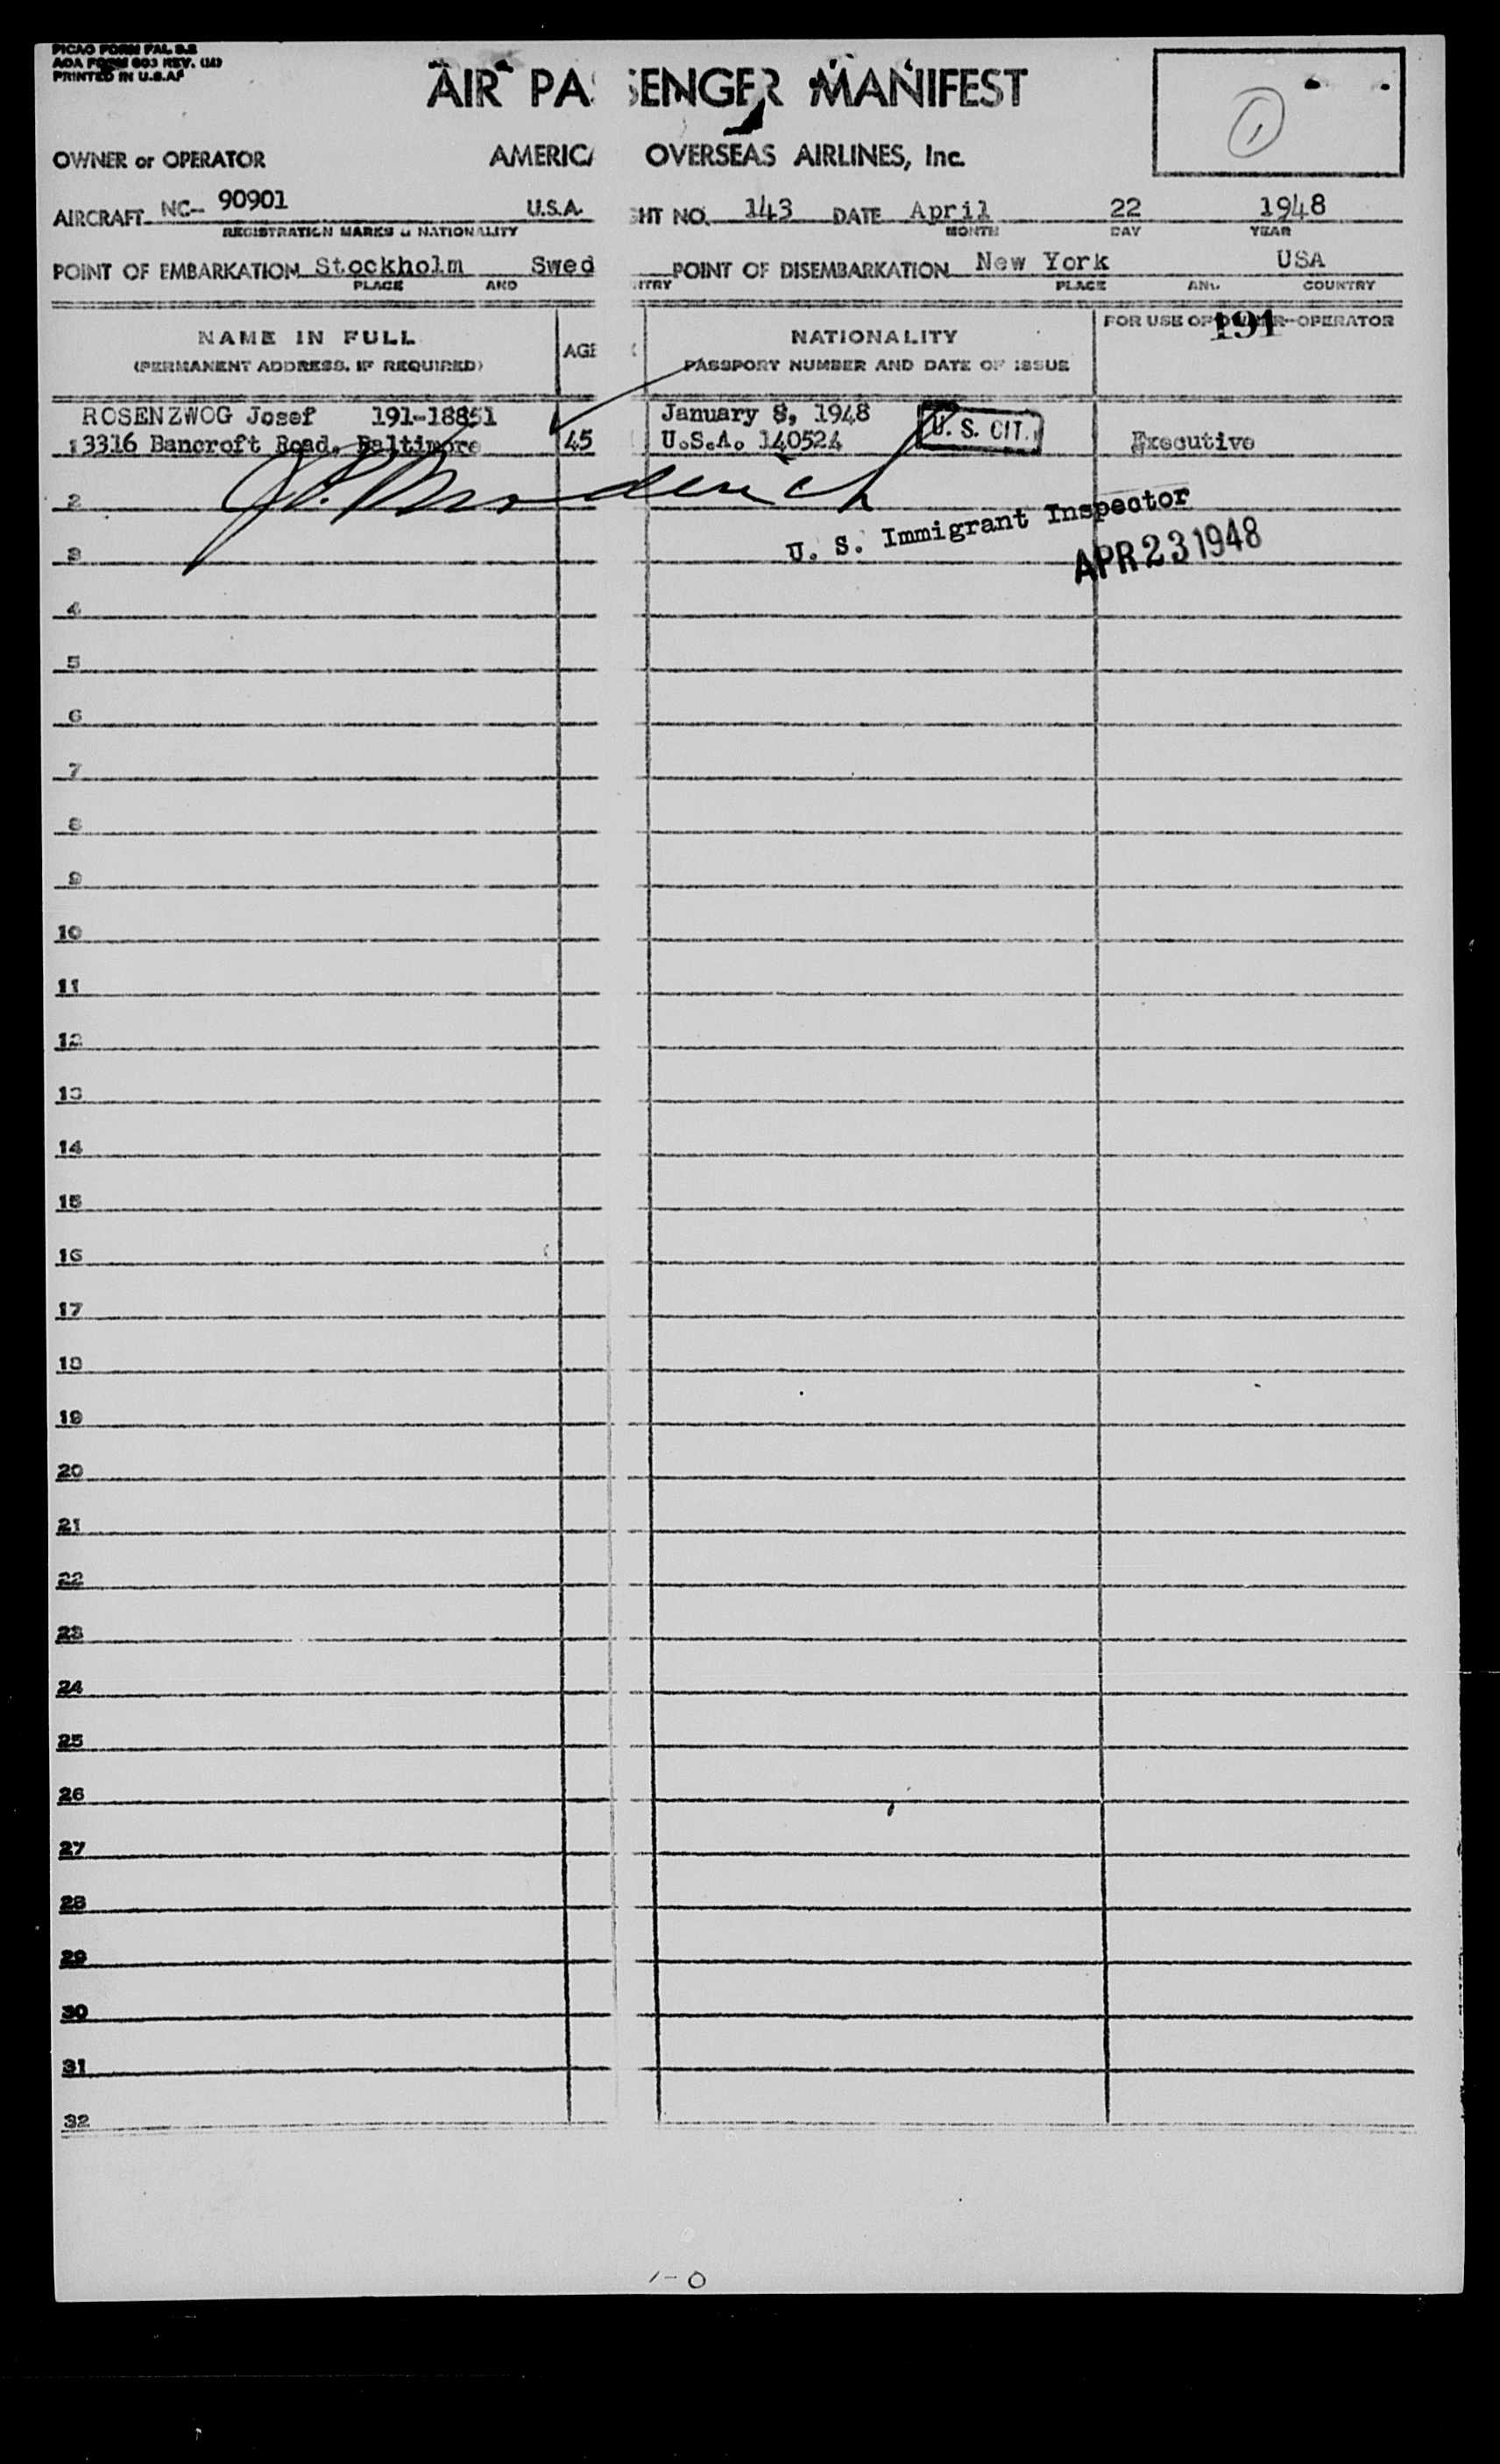 PICAO FORM PAL 9.2
AOA FORM 603 REV.
PRINTED IN U.S.A.
AIR PASSENGER MANIFEST
1
OWNER or OPERATOR AMERICA OVERSEAS AIRLINES, Inc.
AIRCRAFT NC- 90901 U.S.A. GHT NO. 143 DATE April 22 1948
REGISTRATION MARKS & NATIONALITY MONTH DAY YEAR
POINT OF EMBARKATION Stockholm Swed POINT OF DISEMBARKATION New York USA
PLACE AND NTRY PLACE AND COUNTRY
NAME IN FULL
(PERMANENT ADDRESS, IF REQUIRED)
AGE
NATIONALITY
PASSPORT NUMBER AND DATE OF ISSUE
FOR USE OF OWNER-OPERATOR
191
ROSENZWOG Josef 191-18851 January 8, 1948
3316 Bancroft Road, Baltimore 45 U.S.A. 140524 U. S. CIT. Executive
2
U. S. Immigrant Inspector
3
APR 23 1948
4
5
6
7
8
9
10
11
12
13
14
15
16
17
18
19
20
21
22
23
24
25
26
27
28
29
30
31
32
1-0